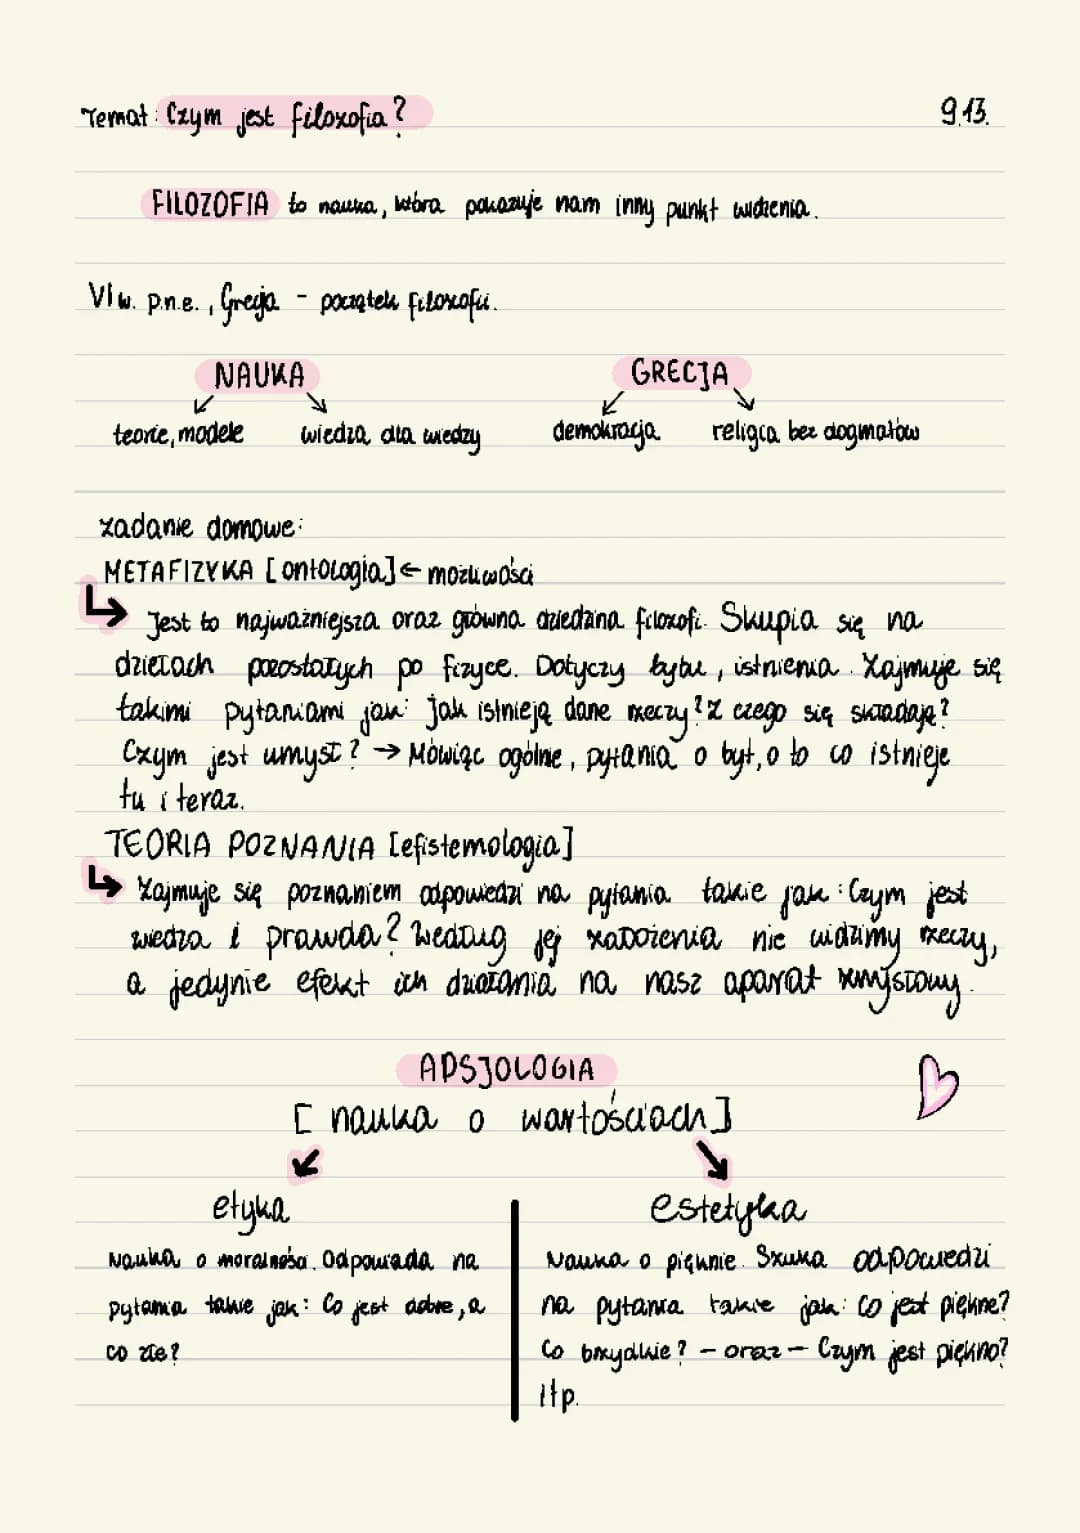 Temat: Czym jest filozofia? 9.13.
FILOZOFIA to nauka, która pokazuje nam inny punkt widzenia.
VI w. p.n.e., Grecja - początek filozofii.
NAUKA GRECJA
teorie, modele wiedza dla wiedzy demokracja religia bez dogmatów
zadanie domowe:
METAFIZYKA [ontologia] ← możliwości
↳ Jest to najważniejsza oraz główna dziedzina filozofi. Skupia się na
dziełach pozostałych po fizyce. Dotyczy bytu, istnienia. Zajmuje się
takimi pytaniami jak: jak istnieją dane rzeczy? Z czego się składają?
Czym jest umysł? → Mówiąc ogólnie, pytania o byt, o to co istnieje
tu i teraz.
TEORIA POZNANIA [efistemologia]
↳ Zajmuje się poznaniem odpowiedzi na pytania takie jak: Czym jest
wiedza i prawda? Według jej założenia nie widzimy rzeczy,
a jedynie efekt ich działania na nasz aparat zmysłowy.
APSJOLOGIA
[nauka o wartościach]
etyka estetyka
Nauka o moralności. Odpowiada na
pytania takie jak: Co jest dobre, a
co złe?
Nauka o pięknie. Szuka odpowiedzi
na pytania takie jak: Co jest piękne?
Co brzydkie? - oraz - Czym jest piękno?
itp.